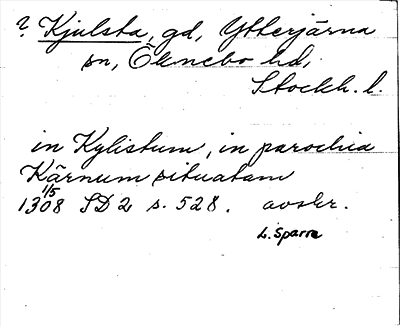 ? Kjulsta, gd, Ytterjärna
sn, Öknebo hd,
Stockh. l.
in Kylistum, in parochia
Kärnum situatam
1/5
1308 SD 2 s. 528. avskr.
L. Sparre